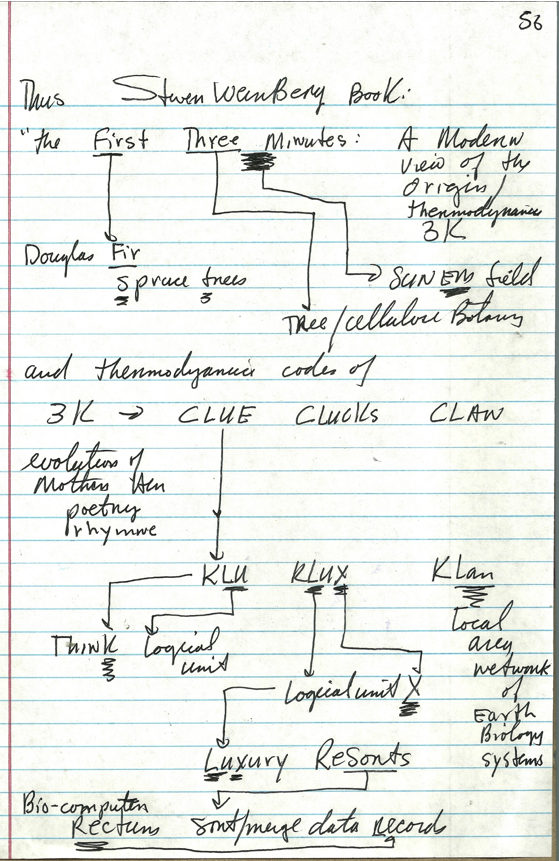 56
Thus Steven WeinBerg Book:
"the First Three Minutes: A Modern
view of the
Origin/
thermodynamics
3K
Douglas Fir
Spruce trees
SUN EM field
Tree/cellulose Botany
and thermodynamic codes of
3K → CLUE CLUCKS CLAW
evolution of
Mothers Hen
poetry
rhymne
KLU KLUX KLan
THINK Logical
unit
Local
area
network
of
Earth
Biology
systems
Logical unit X
Luxury ReSorts
Bio-computer
Rectums Sort/merge data Records